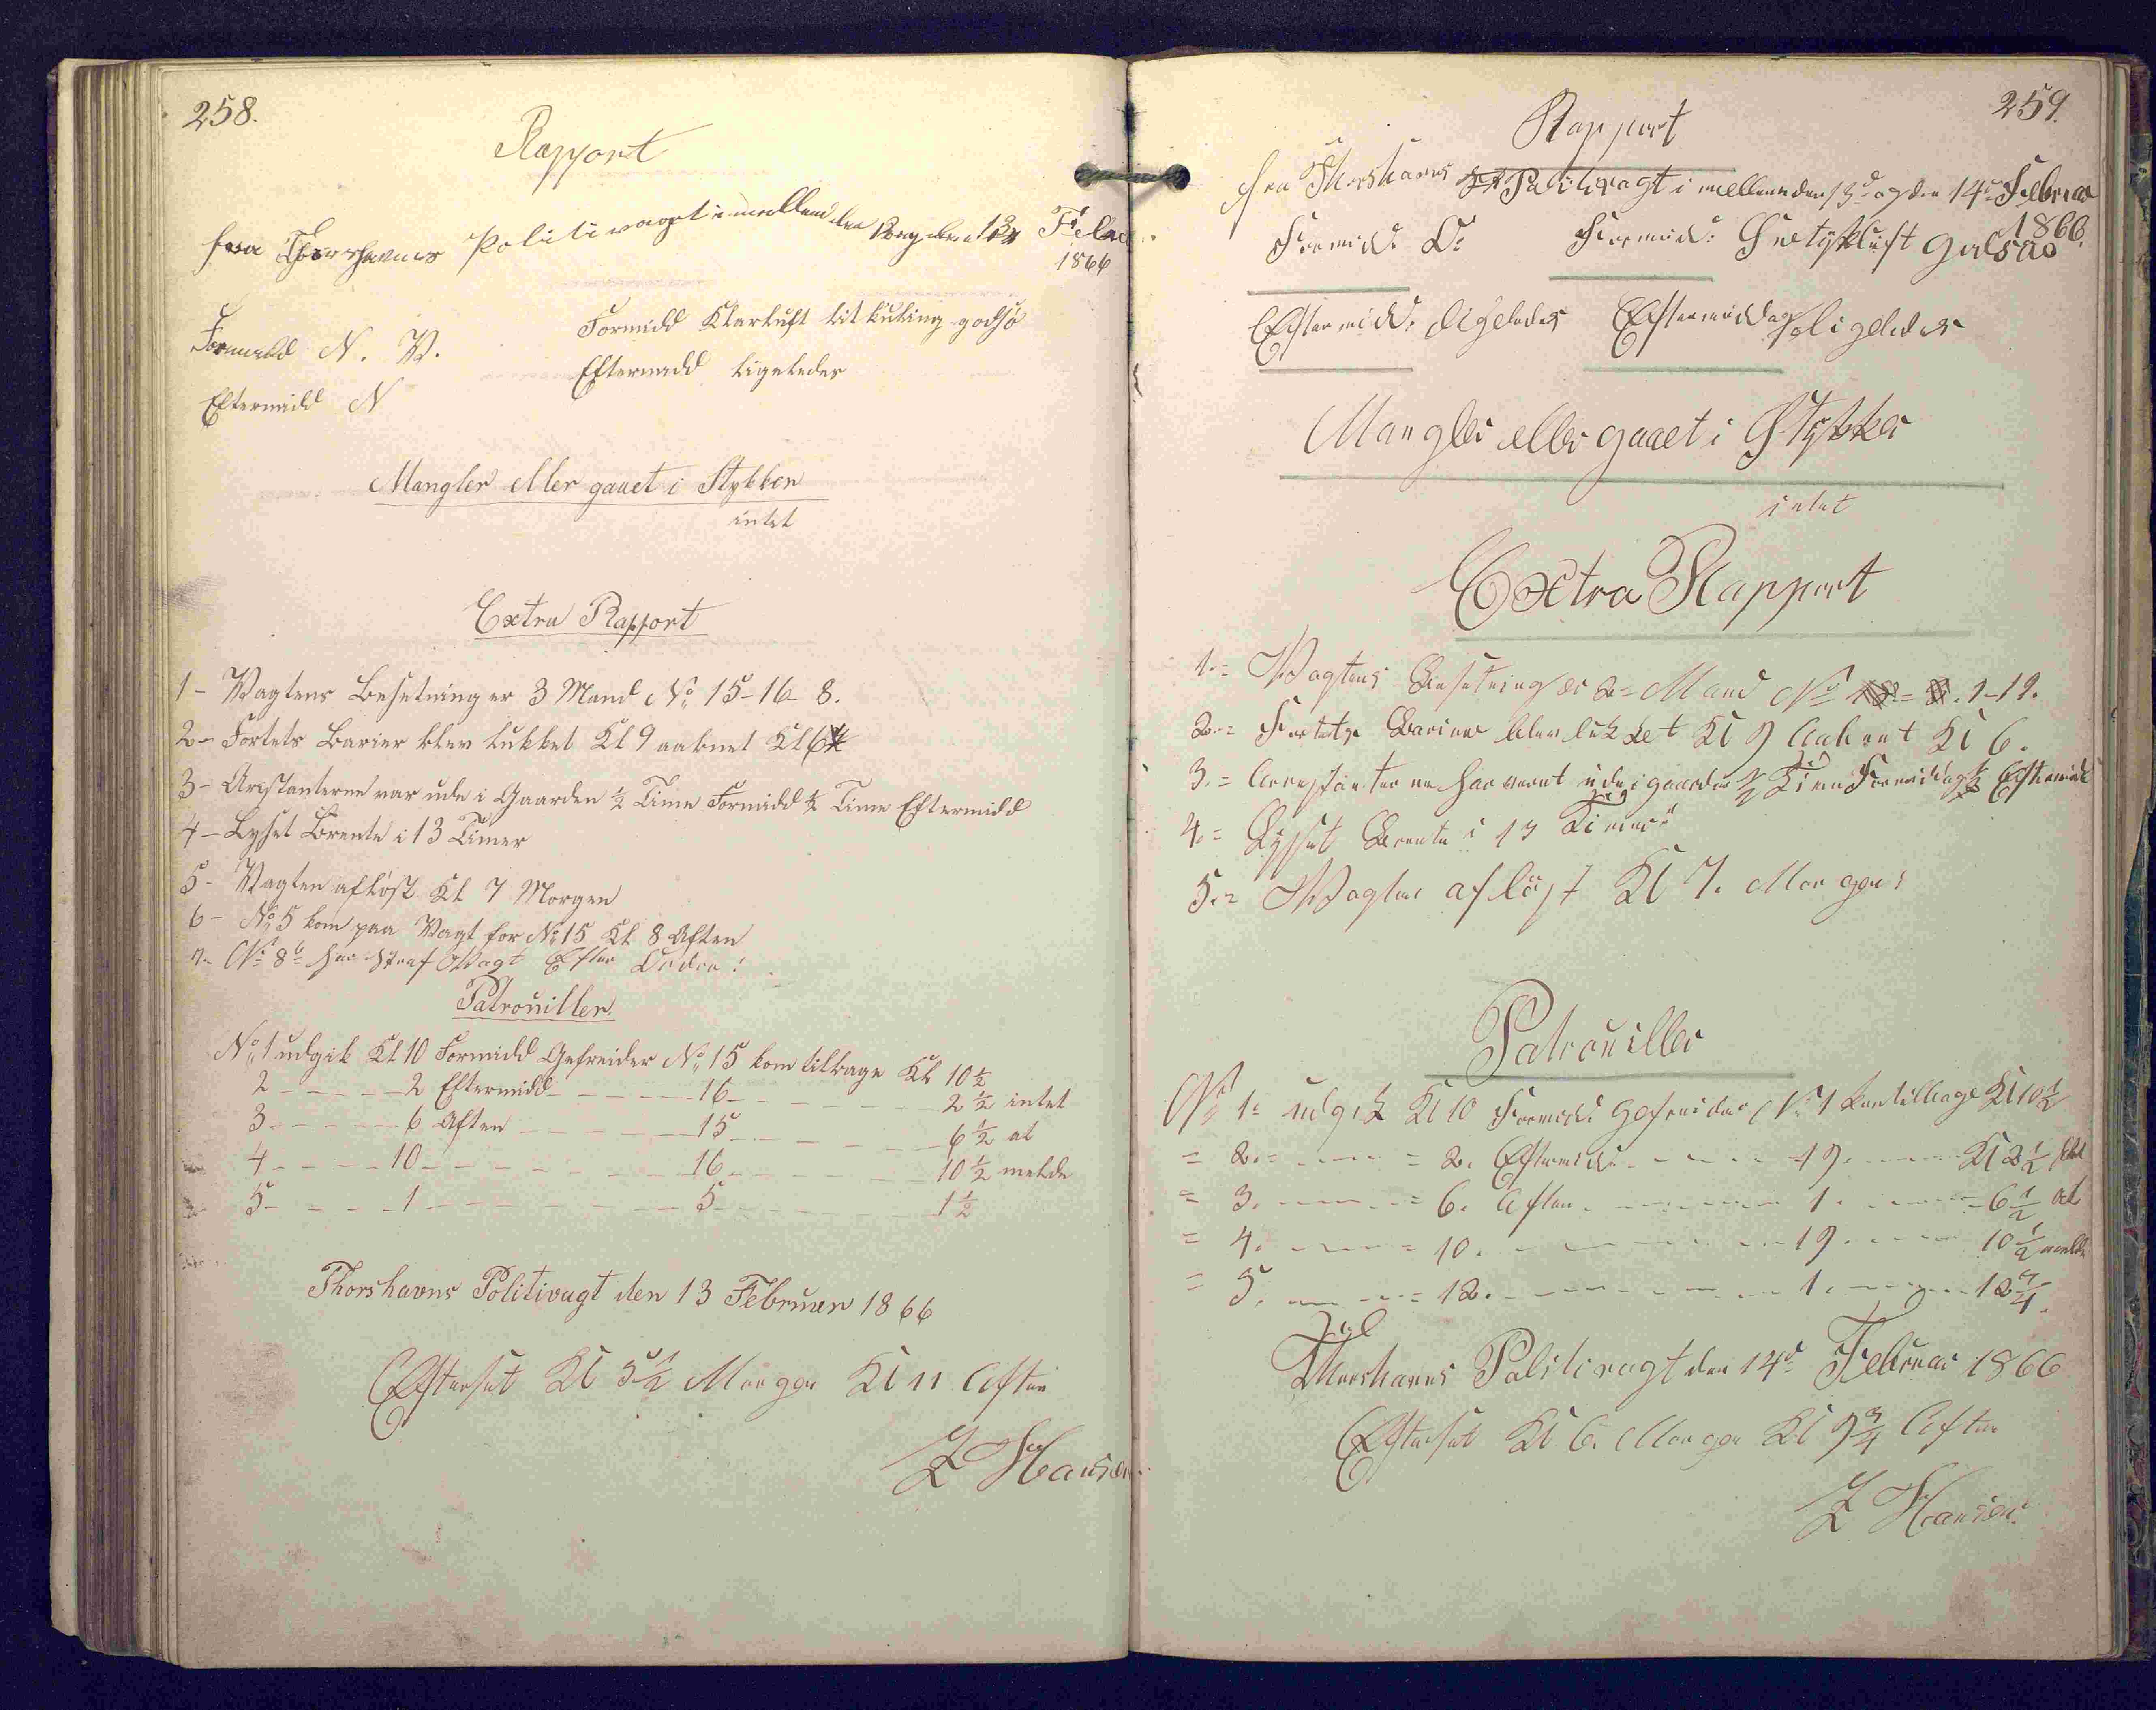 258.
Rapport
fra Thorshavns Politivagt imellem den 12 og den 13 Febru
1866
Formidd N. V. Formidd Klarluft lit kuling godsø
Eftermidd N Eftermidd ligeledes
Mangler eller gaaet i Stykker
intet
Extra Rapport
1 - Vagtens Besetning er 3 Mand No 15-16-8.
2 - Fortets Barier blev lukket Kl 9 aabnet Kl 6
3 - Arestanterne var ude i Gaarden ½ Time Formidd ½ Time Eftermidd
4 - Lyset Brente i 13 Timer
5 - Vagten afløst Kl 7 Morgen
6 - No 5 kom paa Vagt for No 15 Kl 8 Aften
7 - No 8 har Straf Vagt Efter Order!
Patrouiller
No 1 udgik Kl 10 Formidd Gefreider No 15 kom tilbage Kl 10½
2 - - - - 2 Eftermidd - - - - 16 - - - - 2½ intet
3 - - - - 6 Aften - - - - 15 - - - - 6½ at
4 - - - - 10 - - - - 16 - - - - 10½ melde
5 - - - - 1 - - - - 5 - - - - 1½
Thorshavns Politivagt den 13 Februar 1866
Efterset Kl 5½ Morgen Kl 11 Aften
Z Hansen
259.
Rapport
fra Thorshavns Politivagt i mellem den 13d og den 14d Februar
1866.
Formidd: O: Formidd: Snetykluft godsøe
Eftermidd: ligeledes Eftermiddag ligeledes
Mangler eller gaaet i Stykker
intet
Extra Rapport
1.= Vagtens Besetning er 2= Mand No 1-19.
2.= Fortets Barier blev lukket Kl 9 Aabent Kl 6.
3.= Arrestanterne har veret ude i gaarden ½ Time Formiddag ½ Eftermidd
4.= Lyset Brente i 13 Timer
5.= Vagten afløst Kl 7. Morgen:
Patrouiller
No 1= udgik Kl 10 Formidd: Gefreider No 1 kom tilbage Kl 10½
= 2. - - - = 2. Eftermidd. - - - - 19. - - - Kl 2½ intet
= 3. - - - = 6. Aften. - - - - 1. - - - 6½ at
= 4. - - - = 10. - - - - 19. - - - 10½ melde
= 5. - - - = 12. - - - - 1. - - - 12¾.
Thorshavns Politivagt den 14d Februar 1866
Efterset Kl 6. Morgen Kl 9¾ Aften
Z Hansen.